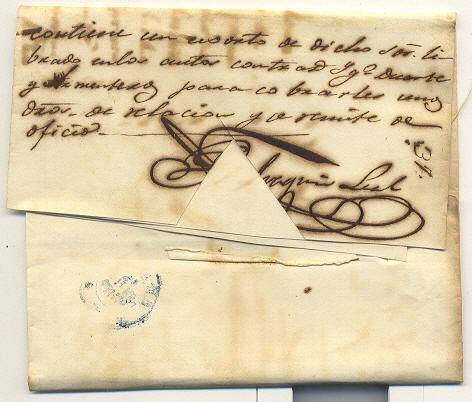 contiene un exorto de dicho Sor. li
brado en los autos contra d Ygo. Duarte
y para cobrarles unos
dros. de relacion y se remite de
oficio.
Joaquin Leal